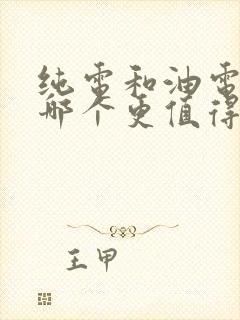 纯电和油电
哪个更值得
王甲